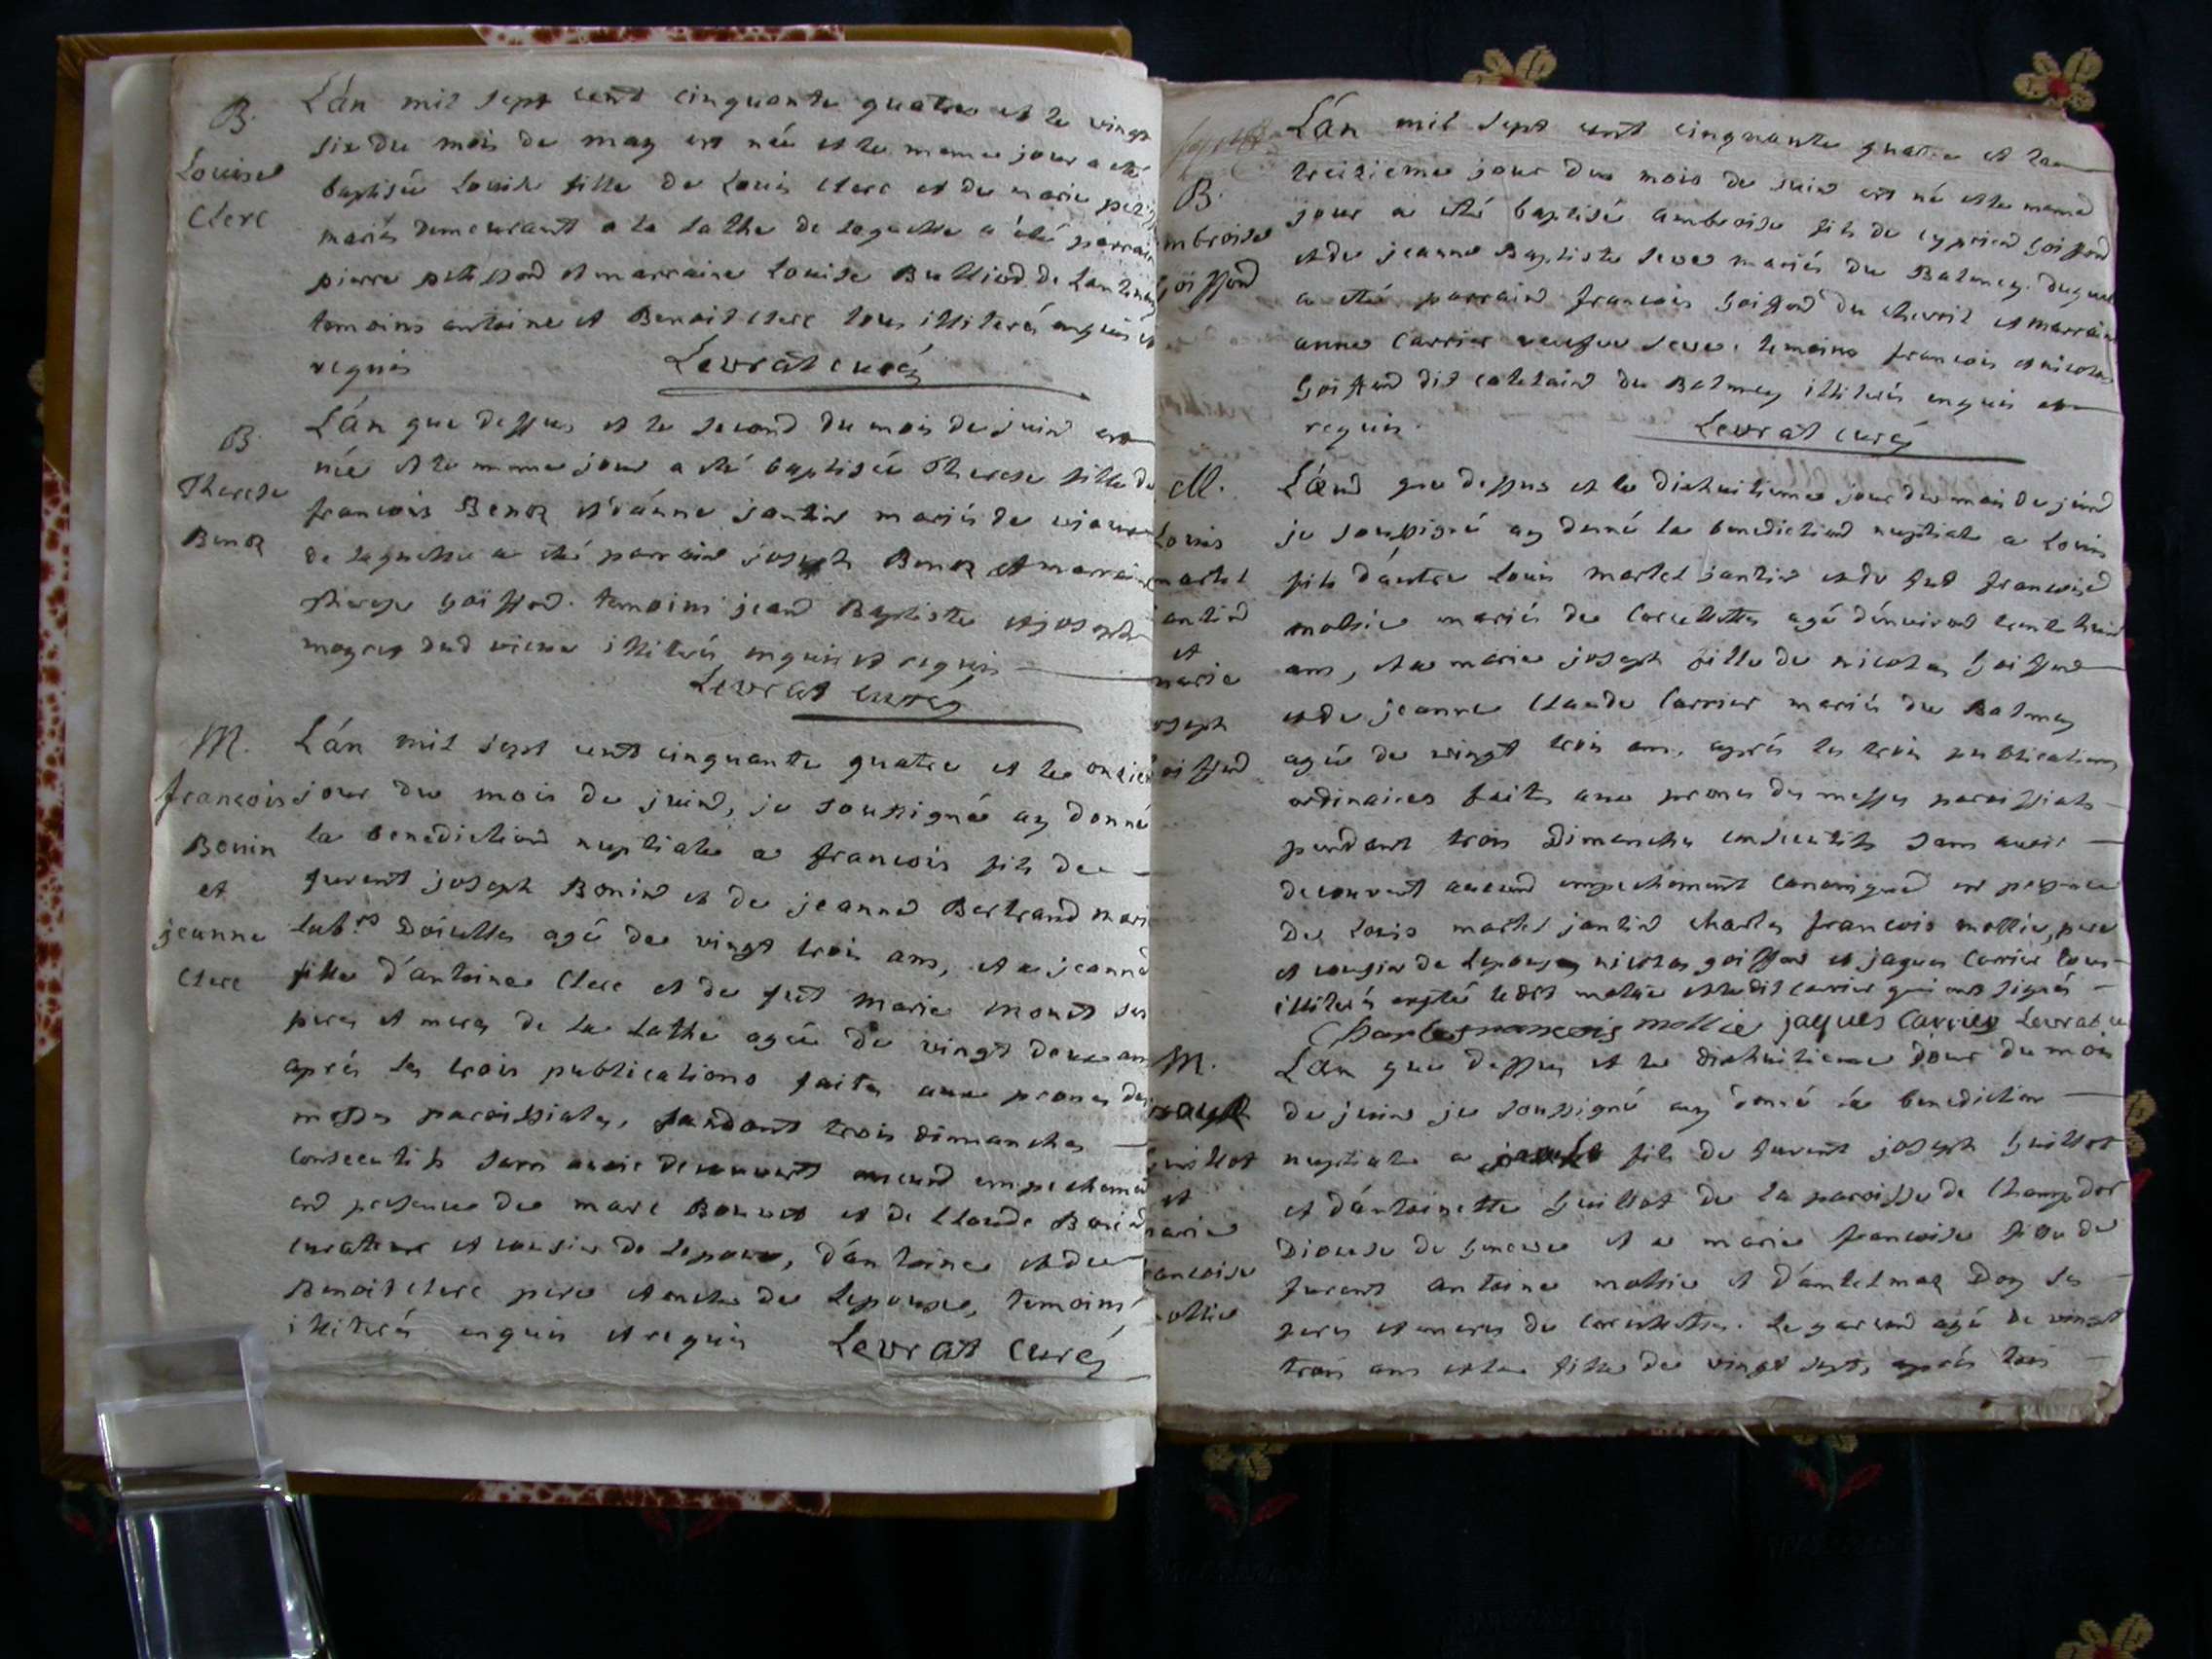 B.
Louise
Clerc
L'án mil sept cent cinquante quatre et le vingt
six du mois de may est née et le meme jour a eté
baptisée Louise fille de Louis Clerc et de marie
mariés demeurant a la Lathe de laquelle a eté parrain
pierre et marraine Louise Bulliod de Lantenay
temoins antoine et Benoit Clerc tous illiterés enquis et
requis Levrat curéz
B.
Therese
Benoz
L'án que dessus et le second du mois de juin est
née et le meme jour a eté baptisée Therese fille de
francois Benoz et d'ánne jantin mariés de
de laquelle a eté parrain joseph Benoz et marraine
therese goiffond. temoins jean Baptiste et joseph
dud illiterés enquis et requis
Levrat curéz
M.
francois
Bonin
et
jeanne
Clerc
L'án mil sept cent cinquante quatre et le onzié
jour du mois de juin, je soussigné ay donné
la benediction nuptiale a francois fils de
furent joseph Bonin et de jeanne Bertrand mari
lab.rs agé de vingt trois ans, et a jeanne
fille d'antoine Clerc et de fut marie monet ses
peres et meres de la Lathe agée de vingt deux ans
aprés les trois publications faites aux prones des
messes paroissiales, pendant trois dimanches
consecutifs sans avoir decouvert aucund empechemen
end presence de marc Bonnet et de Claude Bonin
curateur et cousin de lepoux, d'antoine et de
Benoit clerc pere et oncle de lepouse, temoins
illiterés enquis et requis Levrat Curéz
B.
mbroise
goiffond
L'án mil sept cent cinquante quatre et le
treizieme jour du mois de juin est né et le meme
jour a eté baptisé ambroise fils de cyprien goiffond
et de jeanne Baptiste seve mariés du Balmay. duquel
a eté parrain francois goiffond du chevril et marraine
anne Carrier veufve seve. temoins francois et nicolas
goiffond dit catelain du Balmay illiterés enquis et
requis. Levrat curéz
M.
Louis
martel
jantin
et
marie
oseph
oiffond
L'and que dessus et le dixhuitieme jour du mois de juind
je soussigné ay donné la benediction nuptiale a Louis
fils d'autre Louis martel jantin et de fut francoise
mollie mariés de Corcelettes agé d'environ trente huit
ans, et a marie joseph fille de nicolas goiffond
et de jeanne Claude Carrier mariés du Balmay
agée de vingt trois ans, aprés les trois publications
ordinaires faites aux prones des messes paroissiales
pendant trois Dimanches consecutifs sans avoir
decouvert aucund empechement canonique en presence
de Louis martel jantin charles francois mollie, pere
et cousin de lepoux, nicolas goiffond et jaques Carrier tous
illiterés excepté ledit mollie et ledit carrier qui ont signés
Charles francois mollie jaques Carrier Levrat cu
M.
guillot
et
marie
ancoise
ollie
L'án que dessus et le dixhuitieme jour du mois
de juin je soussigné ay donné la benediction
nuptiale a joseph fils de furent joseph guillot
et d'ántoinette guillot de la paroisse de Champdor
Diocese de geneve et a marie francoise fille de
furent antoine mollie et d'antelmaz Doy ses
peres et meres de Corcelettes. le garcond agé de vingt
trois ans et la fille de vingt sept, aprés trois